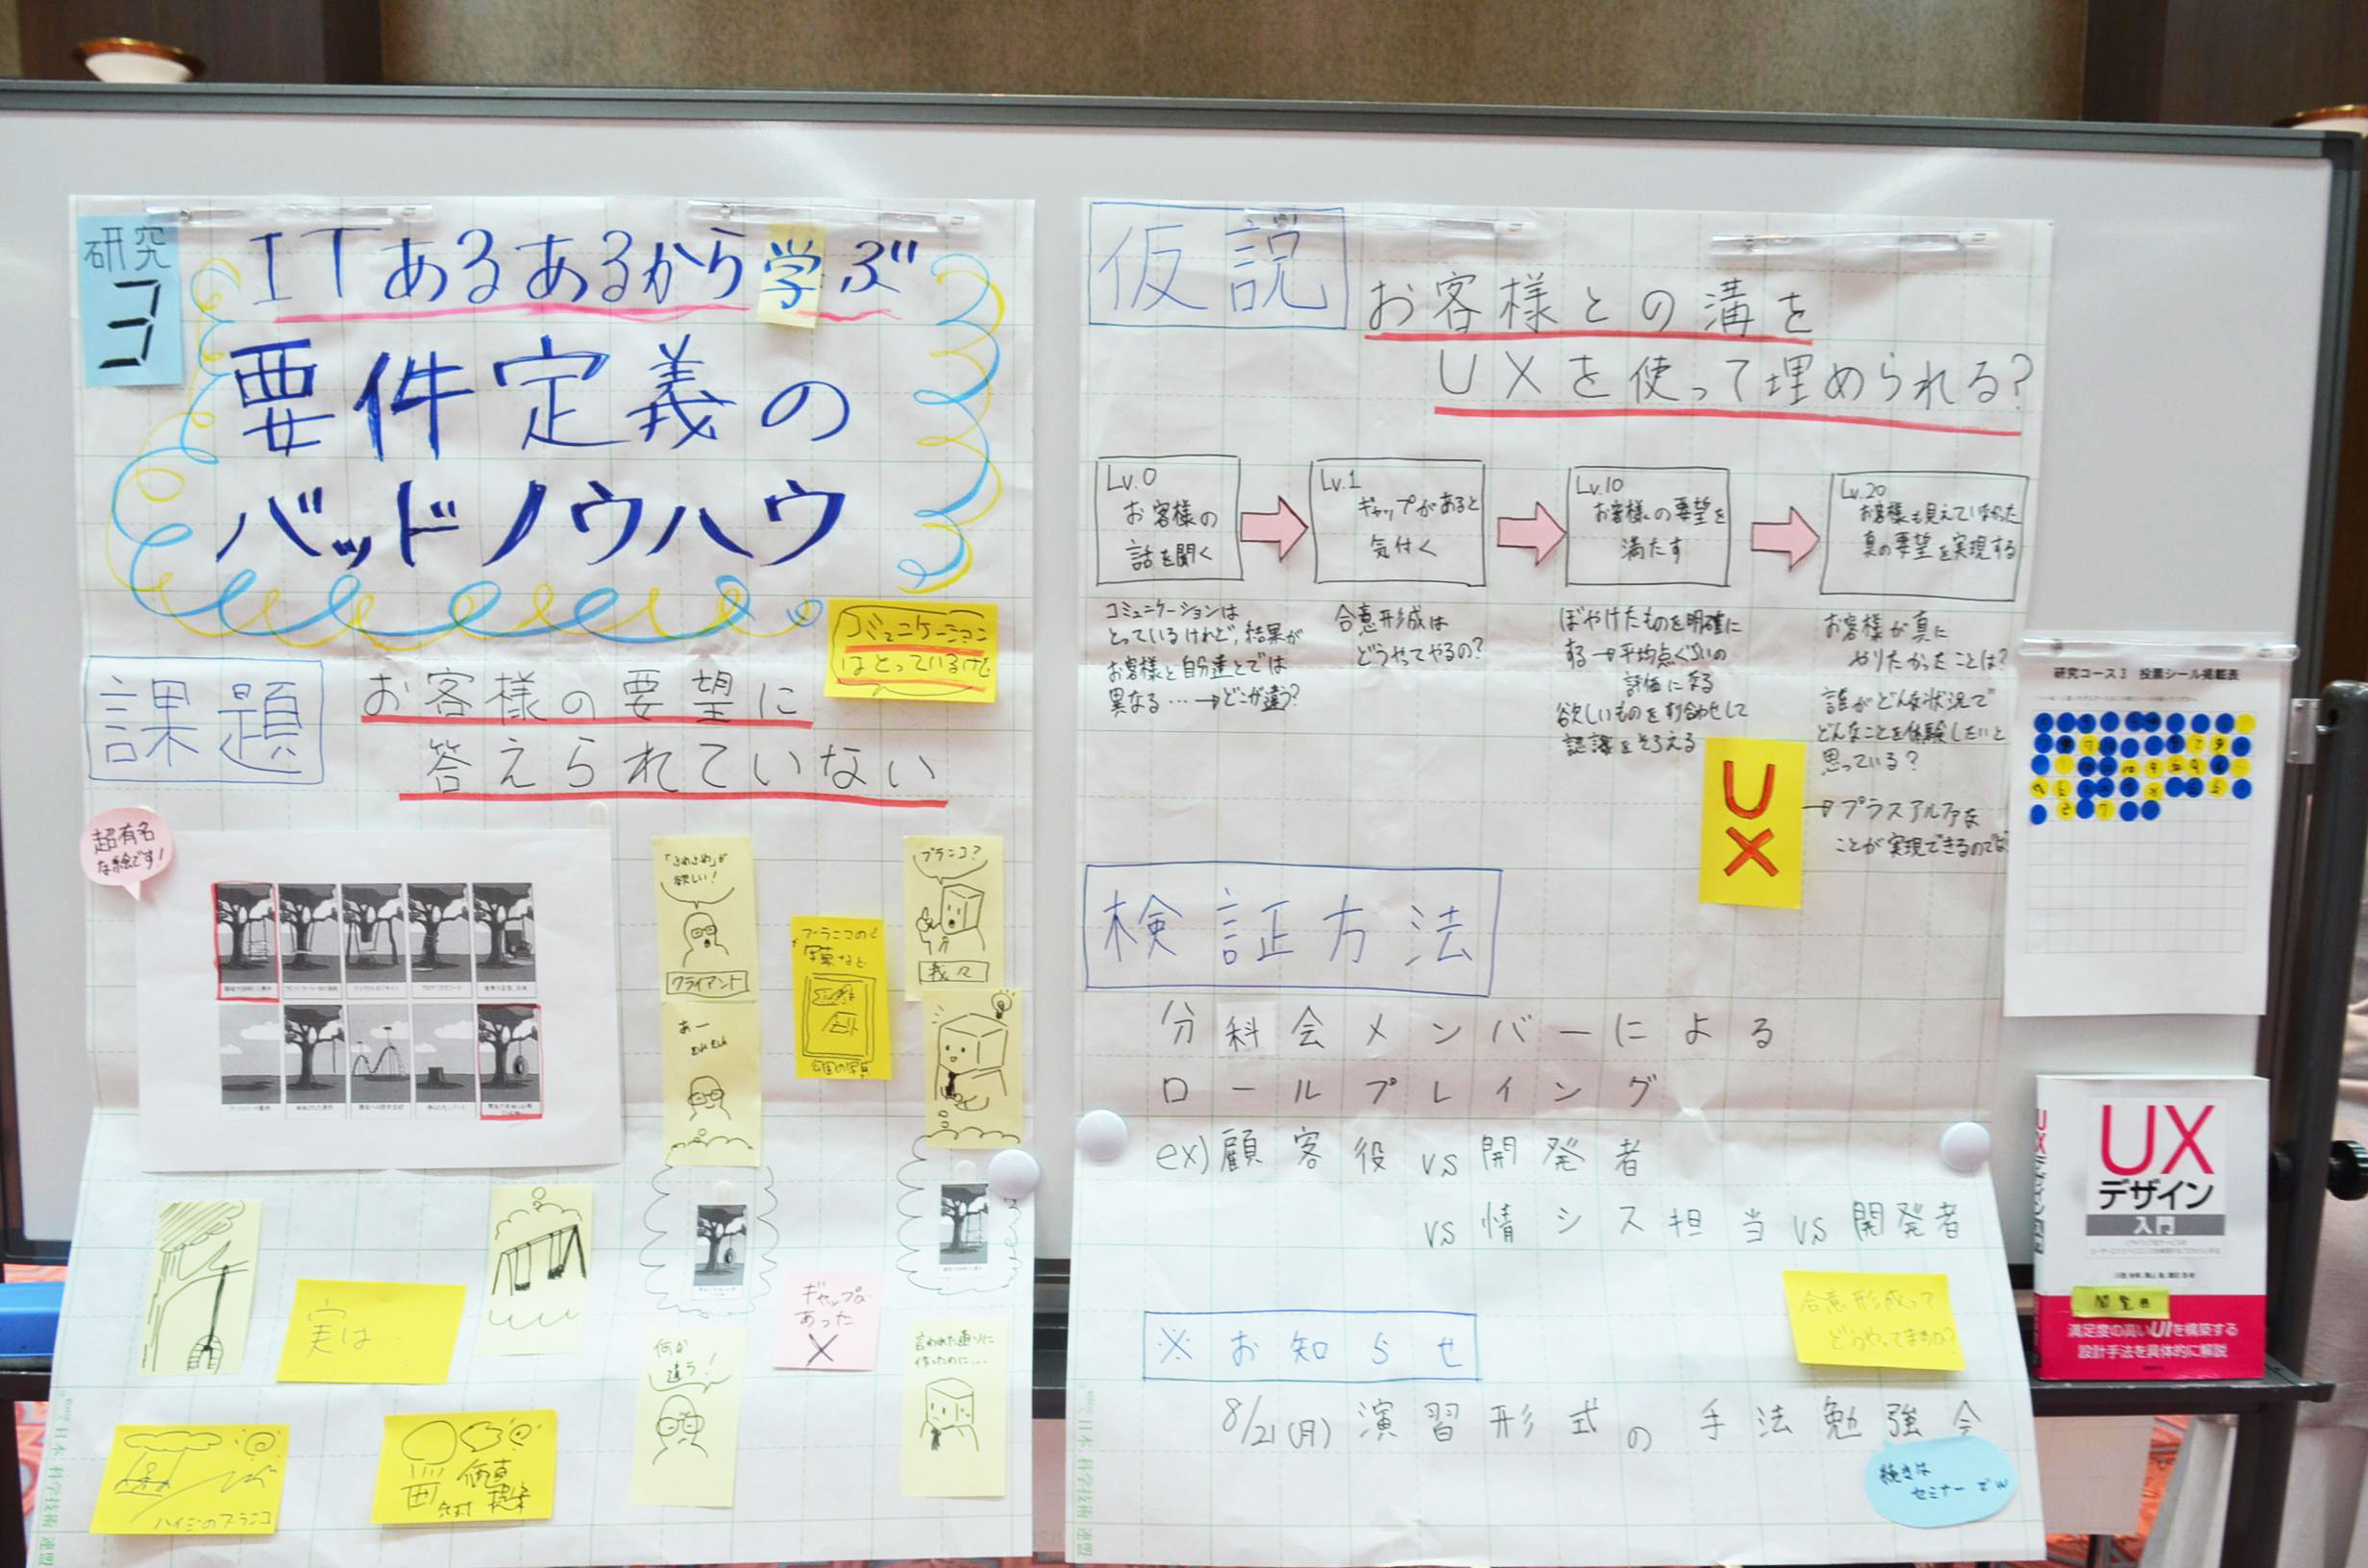 研究
コ
ITあるあるから学ぶ
要件定義の
バッドノウハウ
コミュニケーション
はとっているけど
課題
お客様の要望に
答えられていない
超有名
な絵です!
欲しい!
クライアント
あー
ブラニコの
写真など
ブラニコ?
我々
実は…
ギャップが
あった
X
何か
違う!
言われた通りに
作ったのに…
ハイジのブラニコ
仮説
お客様との溝を
UXを使って埋められる?
Lv.0
お客様の
話を聞く
Lv.1
ギャップがあると
気付く
Lv.10
お客様の要望を
満たす
Lv.20
お客様も見えていなかった
真の要望を実現する
コミュニケーションは
とっているけれど、結果が
お客様と自分達とでは
異なる…→どこが違う?
合意形成は
どうやってやるの?
ぼやけたものを明確に
する→平均点ぐらいの
評価になる
欲しいものをすり合わせして
認識をそろえる
お客様が真に
やりたかったことは?
誰がどんな状況で
どんなことを体験したいと
思っている?
→プラスアルファな
ことが実現できるのでは
UX
検証方法
分科会メンバーによる
ロールプレイング
ex)顧客役 vs 開発者
vs 情シス担当 vs 開発者
合意形成って
どうやってますか?
※お知らせ
8/21(月) 演習形式の手法勉強会
続きは
セミナーでw
研究コース3 投票シール掲載表
UX
デザイン
入門
閲覧用
満足度の高いUIを構築する
設計手法を具体的に解説